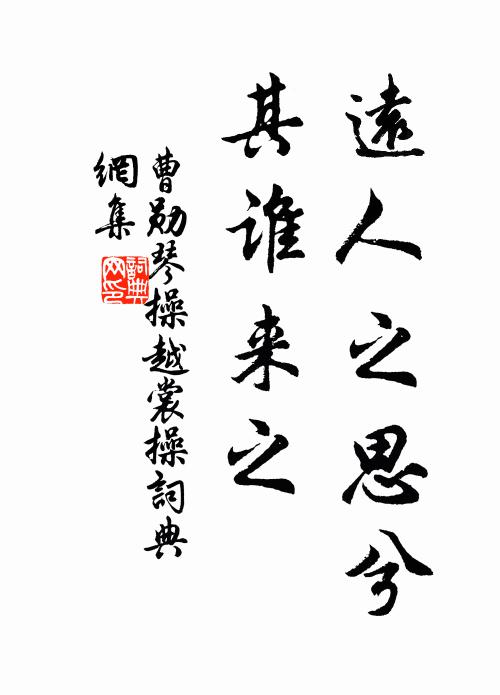 遠人之思兮
其谁来之
曹勋琴操越裳操詞典
網集
詞典网印